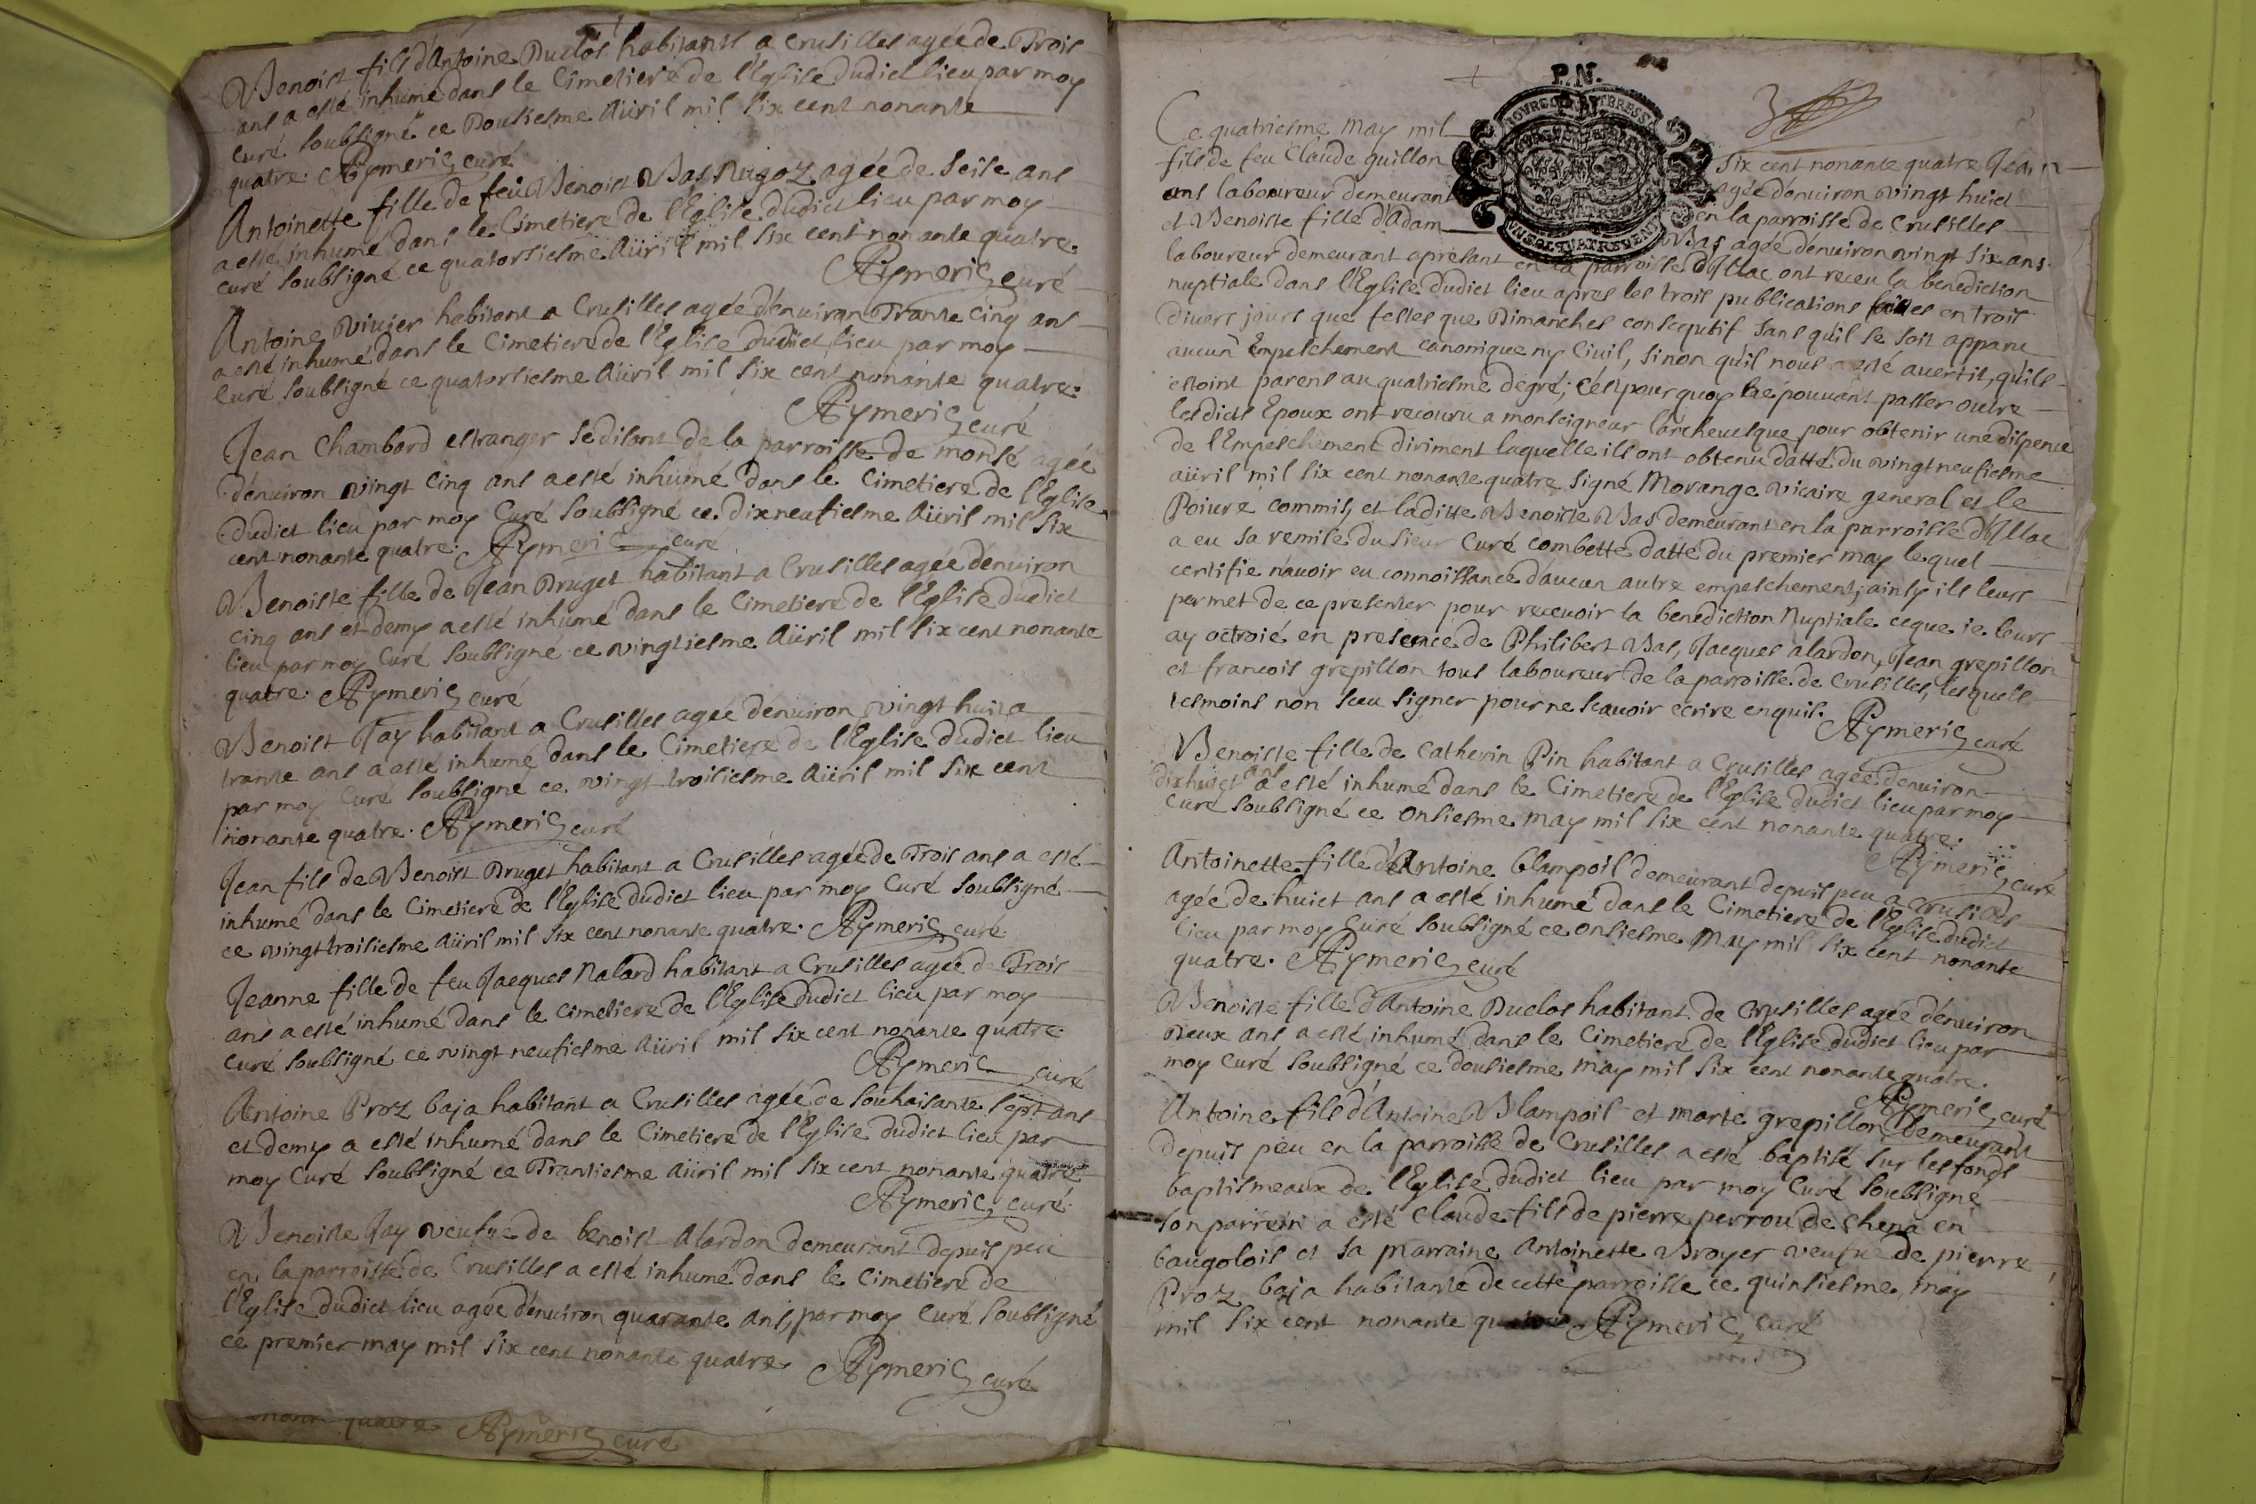 Benoist fils d'Antoine Duclos habitants a Crusilles agée de Trois
ans a esté inhumé dans le Cimetiere de l'Eglise dudict lieu par moy
curé soubsigné ce Dousiesme Aüril mil six cent nonante
quatre. Aymeric curé
Antoinette fille de feu Benoist Bas agée de seise ans
a esté inhumé dans le Cimetiere de l'Eglise dudict lieu par moy
curé soubsigné ce quatorsiesme Aüril mil six cent nonante quatre.
Aymeric curé
Antoine Viuier habitant a Crusilles agée d'enuiron Trante Cinq ans
a esté inhumé dans le Cimetiere de l'Eglise dudict lieu par moy
Curé soubsigné ce quatorsiesme Aüril mil six cent nonante quatre.
Aymeric curé
Jean Chambard estranger se disant de la parroisse de monsé agée
d'enuiron vingt cinq ans a esté inhumé dans le Cimetiere de l'Eglise
dudict lieu par moy Curé soubsigné ce Dixneufiesme Aüril mil six
cent nonante quatre. Aymeric curé
Benoiste fille de Jean Druget habitant a Crusilles agée d'enuiron
cinq ans et demy a esté inhumé dans le Cimetiere de l'Eglise dudict
lieu par moy Curé soubsigné ce vingtiesme Aüril mil six cent nonante
quatre. Aymeric curé
Benoist Jay habitant a Crusilles agée d'enuiron vingt huit a
trante ans a esté inhumé dans le Cimetiere de l'Eglise dudict lieu
par moy Curé soubsigné ce vingt troisiesme Aüril mil six cent
nonante quatre. Aymeric curé
Jean fils de Benoist Druget habitant a Crusilles agée de Trois ans a esté
inhumé dans le Cimetiere de l'Eglise dudict lieu par moy Curé soubsigné
ce vingt troisiesme Aüril mil six cent nonante quatre. Aymeric curé
Jeanne fille de feu Jacques Nalard habitant a Crusilles agée de Trois
ans a esté inhumé dans le Cimetiere de l'Eglise dudict lieu par moy
curé soubsigné ce vingt neufiesme Aüril mil six cent nonante quatre
Aymeric curé
Antoine Proz baja habitant a Crusilles agée de souhaisante sept ans
et demy a esté inhumé dans le Cimetiere de l'Eglise dudict lieu par
moy Curé soubsigné ce Trantiesme Aüril mil six cent nonante quatre
Aymeric curé
Benoiste Jay veufue de benoist Alardon demeurant depuis peu
en la parroisse de Crusilles a esté inhumé dans le Cimetiere de
l'Eglise dudict lieu agée d'enuiron quarante ans, par moy Curé soubsigné
ce premier may mil six cent nonante quatre Aymeric curé
quatre Aymeric curé
P.N.
3
Ce quatriesme May mil six cent nonante quatre Jean
fils de feu Claude guillon agée d'enuiron vingt huict
ans laboureur demeurant en la parroisse de Crusilles
et Benoiste fille d'Adam Bas agée d'enuiron vingt six ans
laboureur demeurant apresant en la parroisse d'Illac ont receu la benediction
nuptiale dans l'Eglise dudict lieu apres les trois publications faites en trois
diuers jours que festes que Dimanches consequtif sans qu'il se soit apparu
aucun Empeschement canonique ny Ciuil, sinon qu'il nous a esté auertis, qu'ils
estoint parens au quatriesme degré; c'est pourquoy ne pouuant passer outre
lesdicts Epoux ont recouru a monseigneur l'archeuesque pour obtenir une dispence
de l'Empeschement diriment laquelle ils ont obtenu datté du vingt neufiesme
aüril mil six cent nonante quatre signé Morange vicaire general et le
Poiure commis, et laditte Benoiste Bas demeurant en la parroisse d'Illac
a eu sa remise du sieur Curé combette datté du premier may lequel
certifie n'auoir eu connoissance d'aucun autre empeschement, ainsy ils leurs
permet de ce presenter pour receuoir la benediction Nuptiale ce que ie leurs
ay octroié en presence de Philibert Bas, Jacques alardon, Jean grepillon
et francois grepillon tous laboureur de la parroisse de Crusilles, lesquels
tesmoins non sceu signer pour ne scauoir ecrire enquis. Aymeric curé
Benoiste fille de Catherin Pin habitant a Crusilles agée d'enuiron
dixhuict ans a esté inhumé dans le Cimetiere de l'Eglise dudict lieu par moy
Curé soubsigné ce onsiesme may mil six cent nonante quatre.
Aymeric curé
Antoinette fille d'Antoine Blampoil demeurant depuis peu a Crusilles
agée de huict ans a esté inhumé dans le Cimetiere de l'Eglise dudict
lieu par moy Curé soubsigné ce onsiesme May mil six cent nonante
quatre. Aymeric curé
Benoiste fille d'Antoine Duclos habitant de Crusilles agée d'enuiron
Deux ans a esté inhumé dans le Cimetiere de l'Eglise dudict lieu par
moy Curé soubsigné ce dousiesme may mil six cent nonante quatre.
Aymeric curé
Antoine fils d'Antoine Blampoil et marte grepillon demeurant
depuis peu en la parroisse de Crusilles a esté baptisé sur les fonds
baptismeaux de l'Eglise dudict lieu par moy Curé soubsigné
son parrein a esté Claude fils de pierre perrou de chena en
baugolois et sa marraine Antoinette Broyer veufue de pierre
Proz baja habitante de cette parroisse ce quinsiesme may
mil six cent nonante quatre Aymeric curé